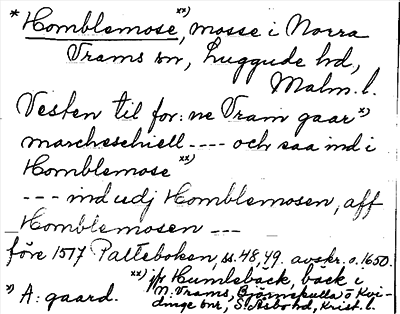 * Homblemose xx), mosse i Norra
Vrams sn, Luggude hd,
Malm. l.
Vesten til for:ne Vram gaar x)
marcheschiell ---- och saa ind i
Homblemose xx)
--- ind udj Homblemosen, aff
Homblemosen ---
före 1577 Palteboken, ss. 48, 49. avskr. o. 1650.
x) A: gaard.
xx) jfr Humlebäck, bäck i
N. Vrams, Björnekulla o Kvi-
dinge snr, S. Åsbo hd, Krist. l.